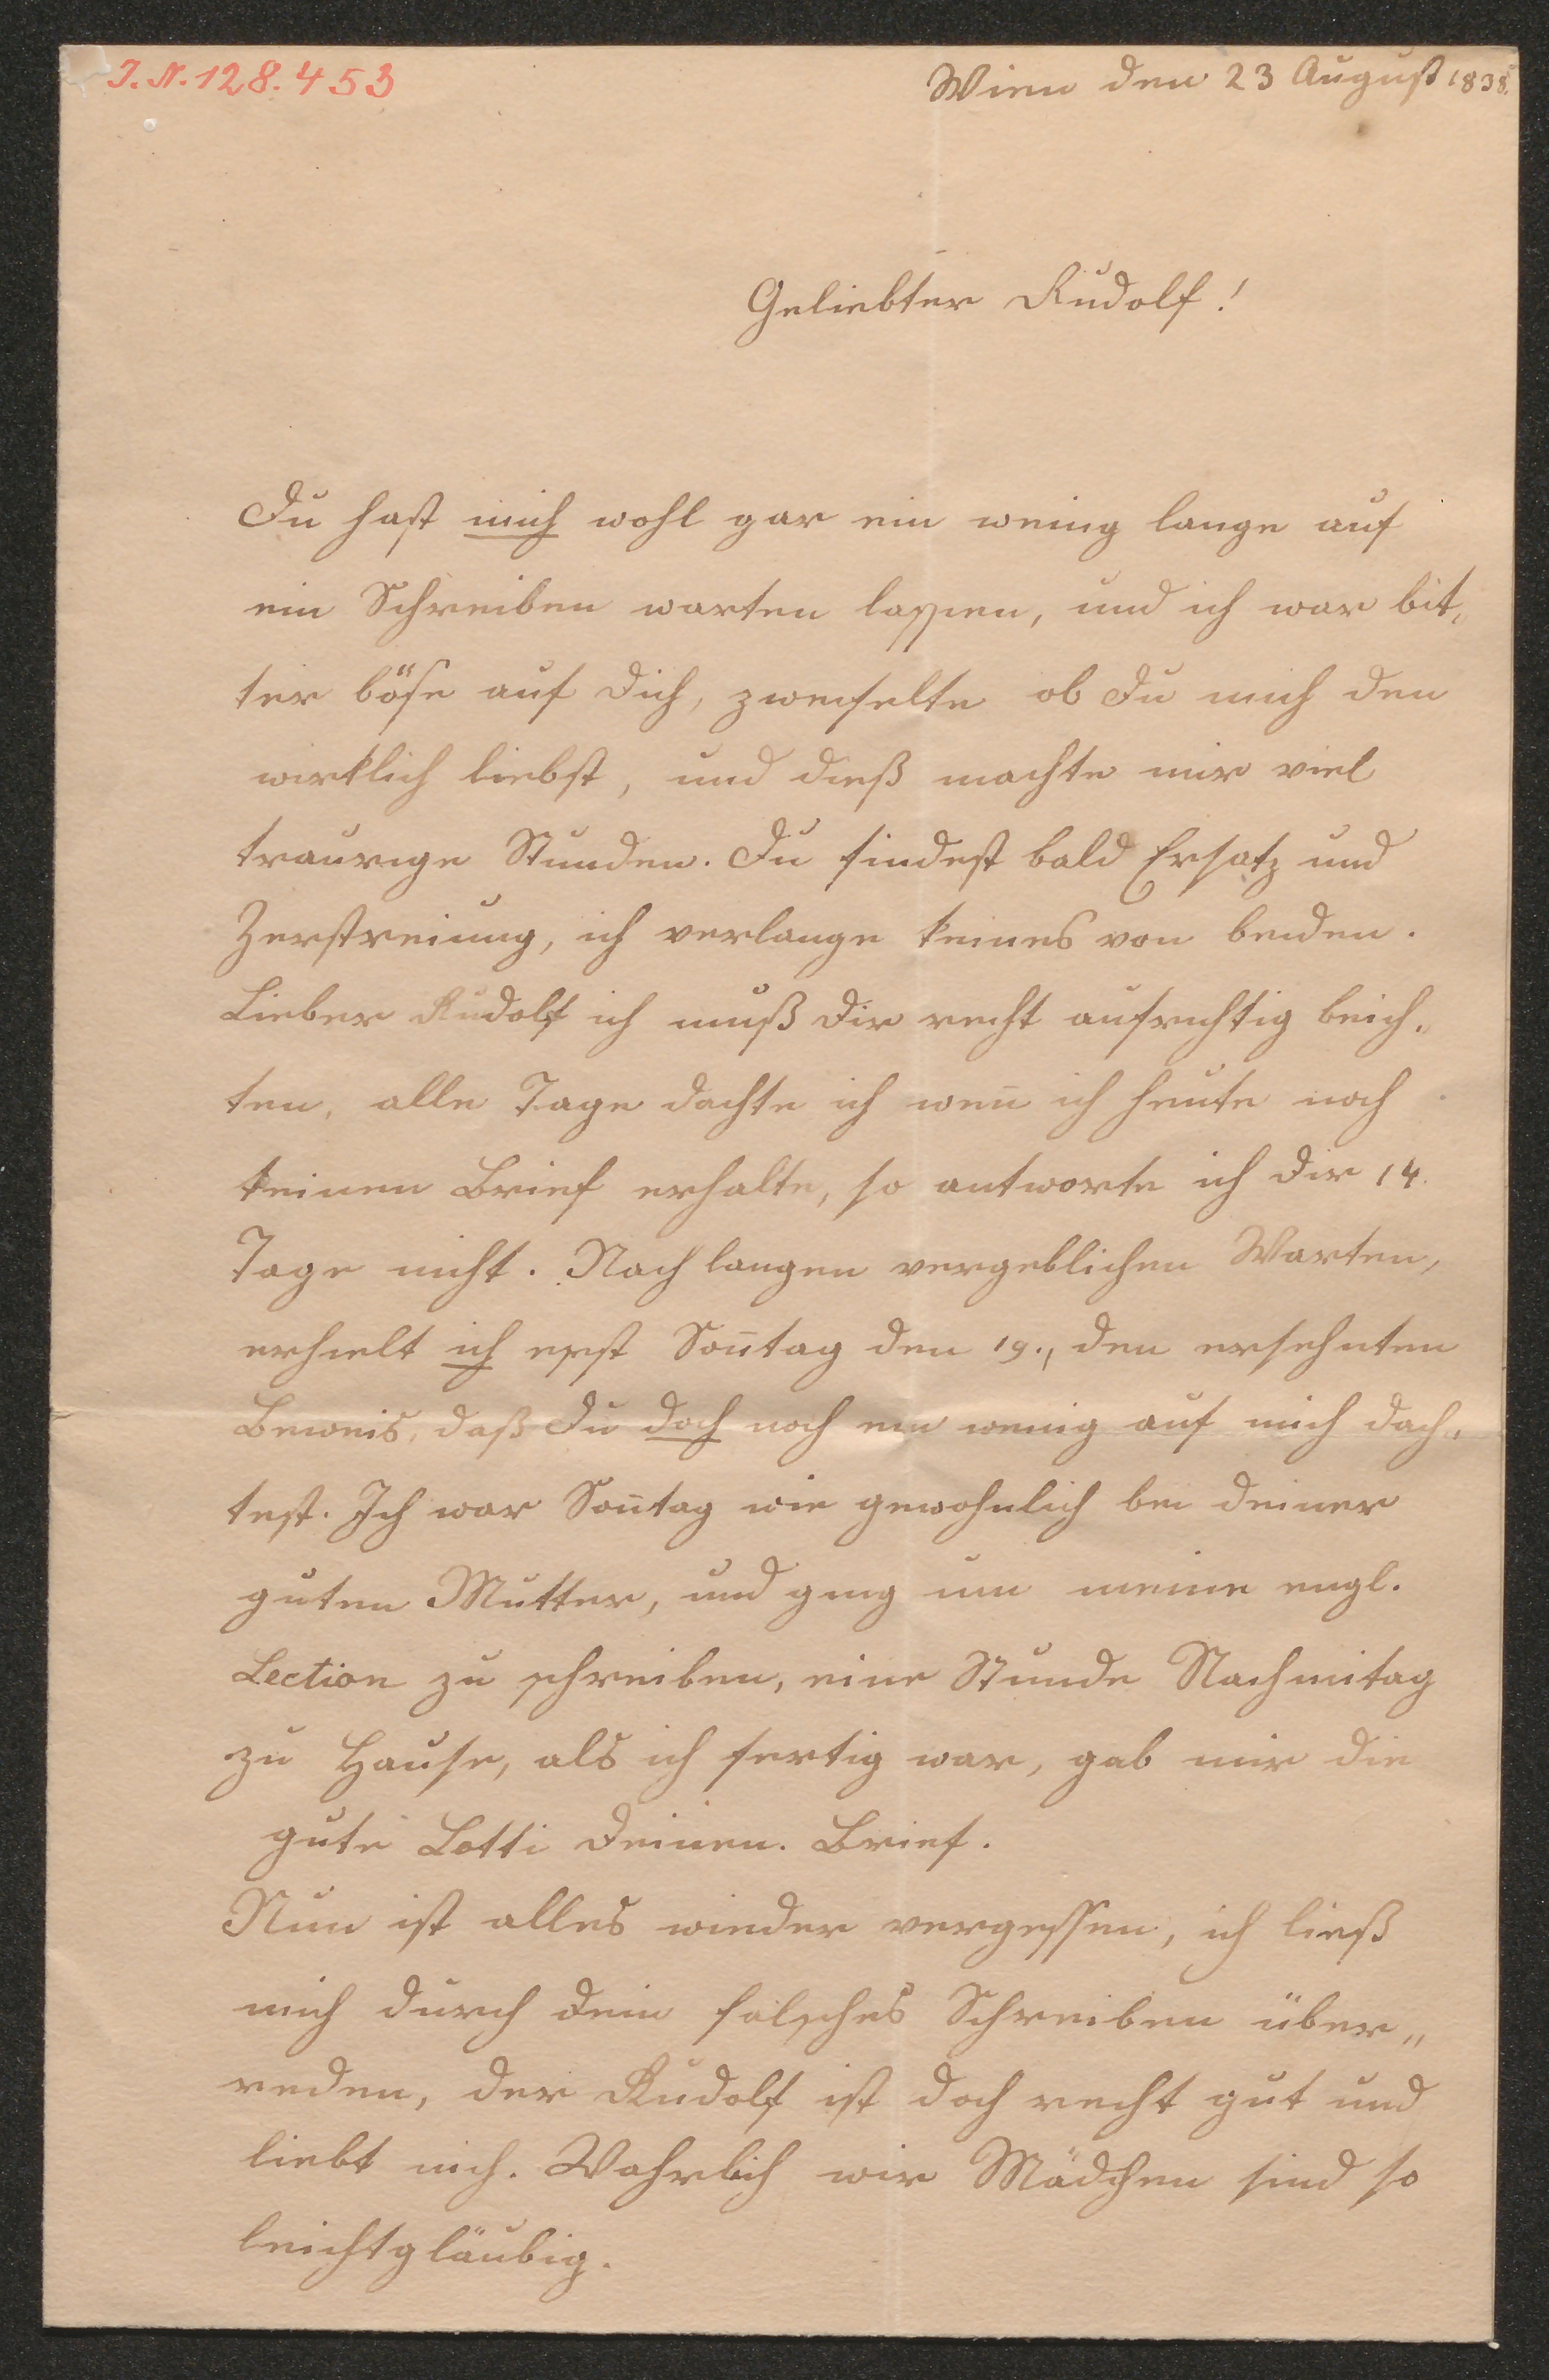 I.N.128.453
Wien den 23 August 1838.
Geliebter Rudolf!
Du hast mich wohl gar ein wenig lange auf
ein Schreiben warten lassen, und ich war bit„
ter böse auf Dich, zweifelte ob Du mich den
wirklich liebst, und dieß machte mir viel
traurige Stunden. Du findest bald Ersatz und
Zerstreiung, ich verlange keines von beiden.
Lieber Rudolf ich muß Dir recht aufrichtig beich„
ten, alle Tage dachte ich wen̄ ich heute noch
keinen Brief erhalte, so antworte ich Dir 14.
Tage nicht. Nach langen vergeblichen Warten,
erhielt ich erst Son̄tag den 19., den ersehnten
Beweis, daß Du doch noch ein wenig auf mich dach„
test. Ich war Son̄tag wie gewohnlich bei deiner
guten Mutter, und ging um meine engl.
Lection zu schreiben, eine Stunde Nachmitag
zu Hause, als ich fertig war, gab mir die
gute Lotti Deinen. Brief.
Nun ist alles wieder vergessen, ich ließ
mich durch Dein falsches Schreiben über„
reden, der Rudolf ist doch recht gut und
liebt mich. Wahrlich wir Mädchen sind so
leichtgläubig.